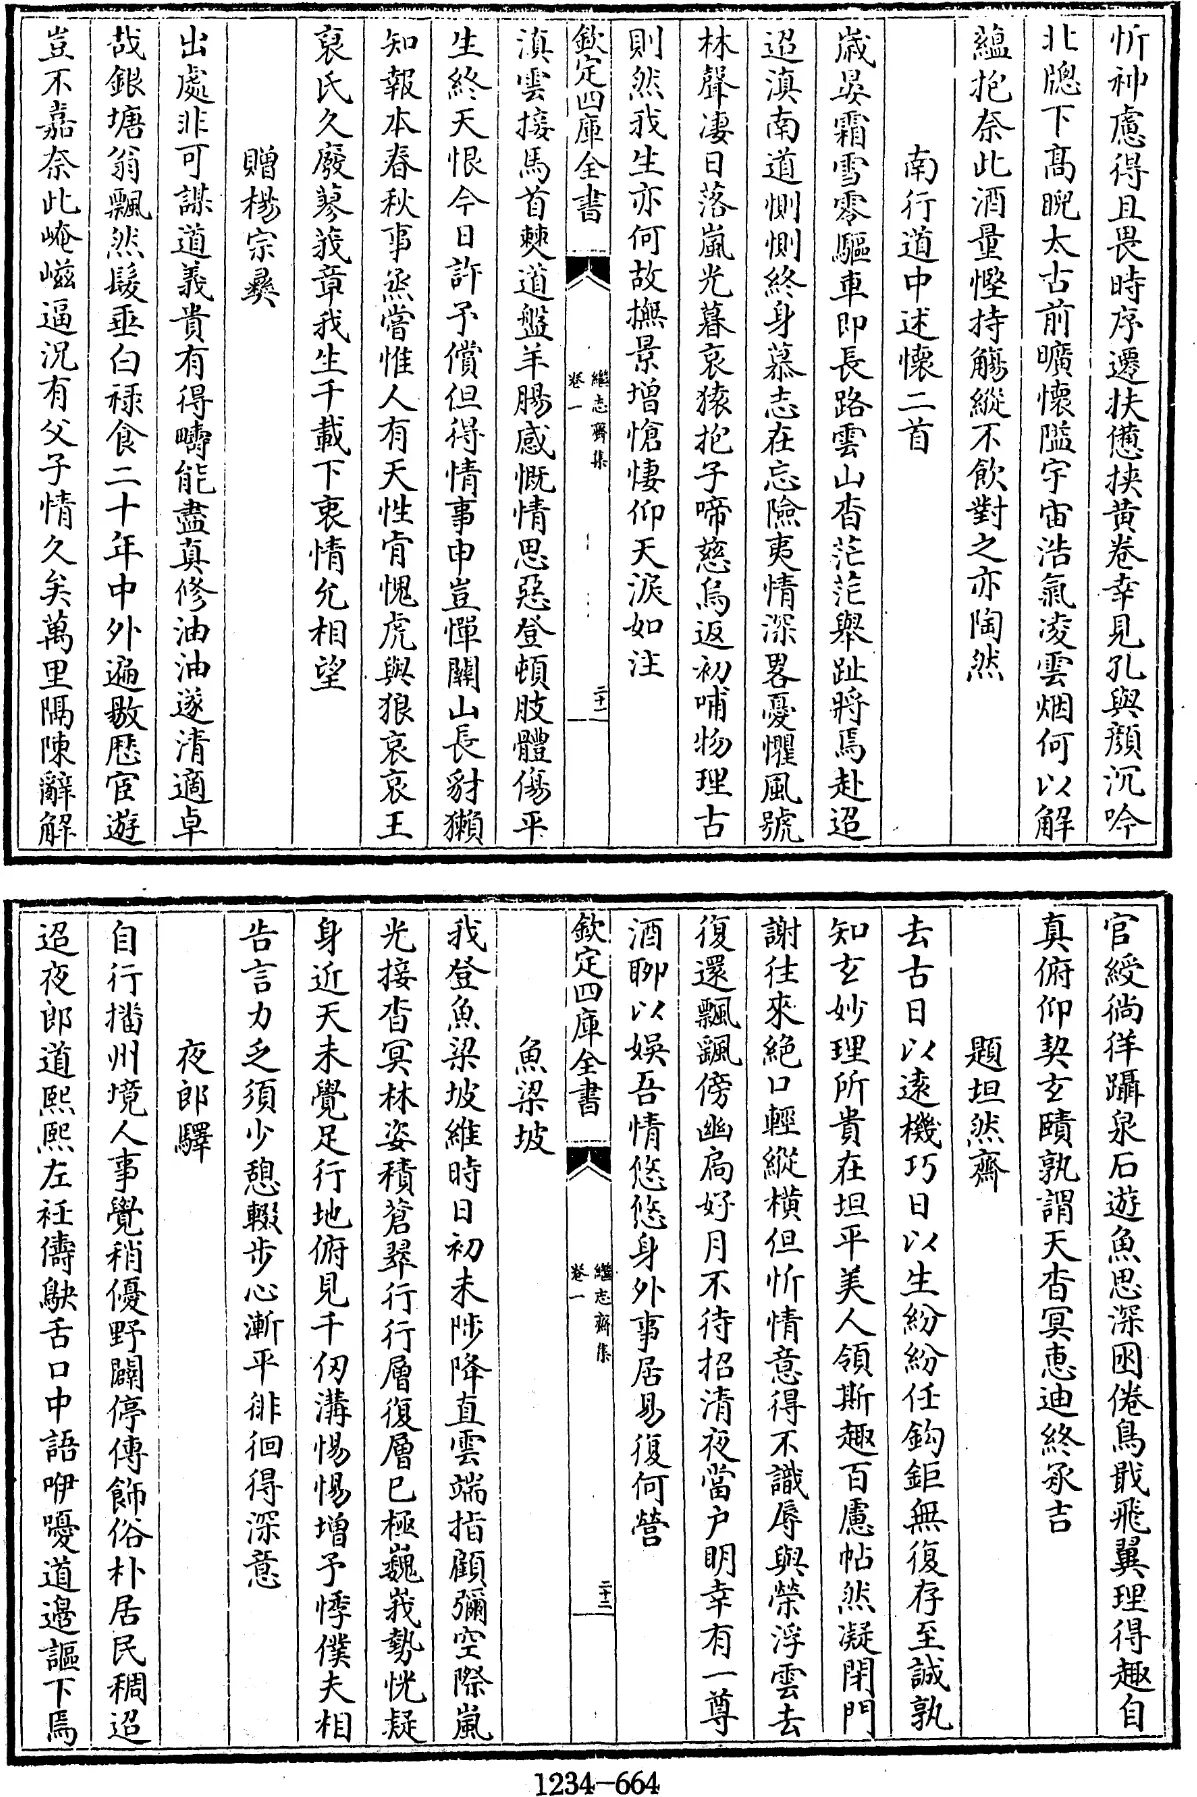 忻神慮得且畏時序遷扶憊挾黄卷幸見孔與顔沉吟
北牎下髙睨太古前曠懷隘宇宙浩氣凌雲烟何以解
藴抱奈此酒量慳持觴縱不飲對之亦陶然
南行道中述懷二首
歳晏霜雪零驅車即長路雲山杳茫茫舉趾將焉赴迢
迢滇南道惻惻終身慕志在忘險夷情深畧憂懼風號
林聲凄日落嵐光暮哀猿抱子啼慈烏返初哺物理古
則然我生亦何故撫景增愴悽仰天淚如注
欽定四庫全書
繼志齋集
卷一
二十一
滇雲接馬首棘道盤羊腸感慨情思惡登頓肢體傷平
生終天恨今日許予償但得情事申豈憚關山長豺獺
知報本春秋事烝嘗惟人有天性肯愧虎與狼哀哀王
裒氏久廢蓼莪章我生千載下衷情允相望
贈楊宗彞
出處非可謀道義貴有得疇能盡真修油油遂清適卓
哉銀塘翁飄然髮垂白禄食二十年中外遍敭歴宦遊
豈不嘉奈此崦嵫逼況有父子情久矣萬里隔陳辭解
官綬徜徉躡泉石遊魚思深囦倦鳥戢飛翼理得趣自
真俯仰契玄賾孰謂天杳冥恵迪終承吉
題坦然齋
去古日以遠機巧日以生紛紛任鈎鉅無復存至誠孰
知玄妙理所貴在坦平美人領斯趣百慮帖然凝閉門
謝往來絶口輕縱橫但忻情意得不識辱與榮浮雲去
復還飄飄傍幽扃好月不待招清夜當户明幸有一尊
酒聊以娱吾情悠悠身外事居易復何營
欽定四庫全書
繼志齋集
卷一
二十二
魚梁坡
我登魚梁坡維時日初未陟降直雲端指顧彌空際嵐
光接杳冥林姿積蒼翠行行層復層已極巍峩勢恍疑
身近天未覺足行地俯見千仞溝惕惕增予悸僕夫相
告言力乏須少憩輟步心漸平徘徊得深意
夜郎驛
自行播州境人事覺稍優野闢停傳飾俗朴居民稠迢
迢夜郎道熙熙左衽儔鴃舌口中語咿嚘道邊謳下馬
1234-664